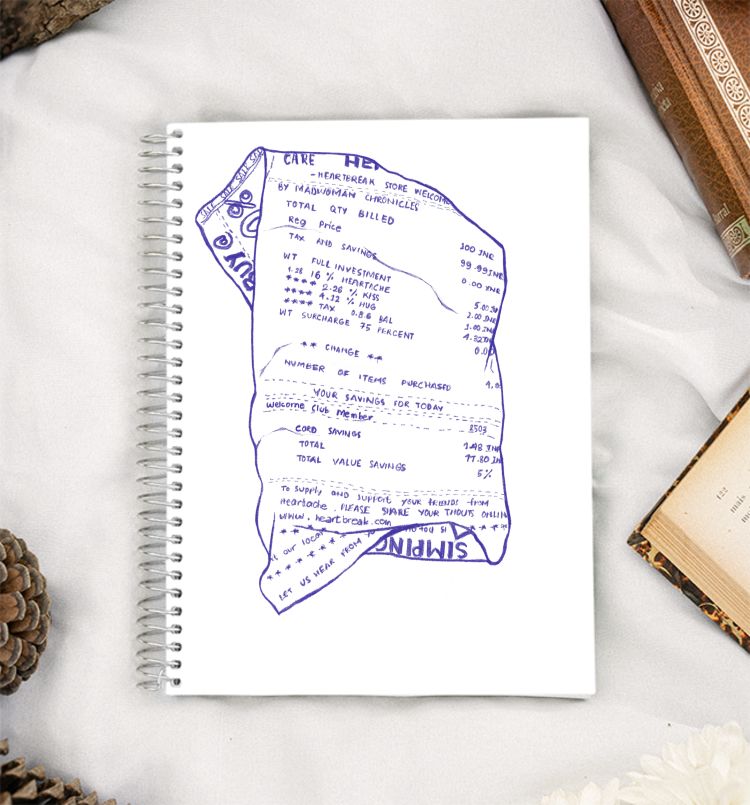 SALE SALE SALE
%
BUY @
CARE HE
- HEARTBREAK STORE WELCOME
BY MADWOMAN CHRONICLES
TOTAL QTY BILLED
Reg Price 100 INR
TAX AND SAVINGS 99.99INR
0.00 INR
WT FULL INVESTMENT
1.28 16 % HEARTACHE 5.00 IN
**** 2.26 % KISS 2.00 INR
**** 4.12 % HUG 1.00 INR
**** TAX 0.8.6 BAL 4.32IN
WT SURCHARGE 75 PERCENT 0.0
** CHANGE **
NUMBER OF ITEMS PURCHASED 4,0
YOUR SAVINGS FOR TODAY
Welcome Club Member 8503
CORD SAVINGS 1.48 INR
TOTAL 17.80 IN
TOTAL VALUE SAVINGS 5%
To Supply AND SUPPORT YOUR FRIENDS from
Heartache. PLEASE SHARE YOUR THOUTS ONLIN
WWW. heartbreak.com
at our local
LET US HEAR FROM
SIMPING